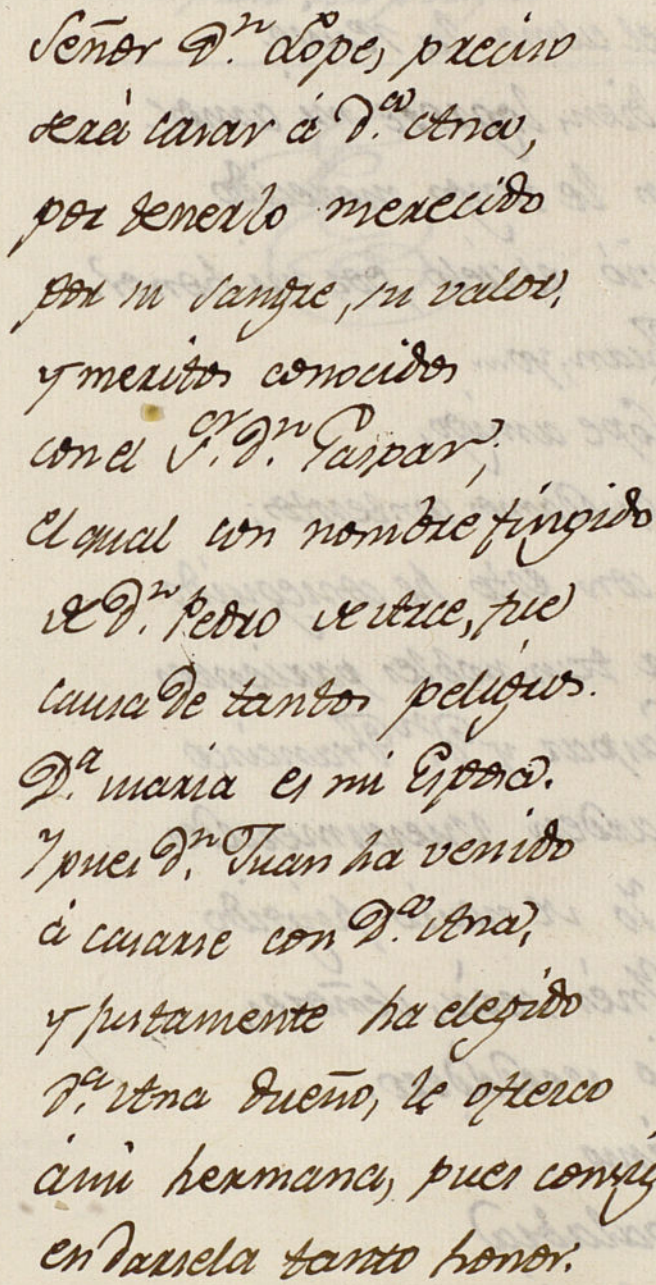 Señor D.ⁿ Lope, preciso
será casar á D.ª Ana,
por tenerlo merecido
por su sangre, su valor,
y meritos conocidos
con el S.ᵒʳ D.ⁿ Gaspar,
el qual con nombre fingido
de D.ⁿ Pedro de Arce, fue
causa de tantos peligros.
D.ª maria es mi Esposa.
Y pues D.ⁿ Juan ha venido
á casarse con D.ª Ana,
y justamente ha elegido
d.ª Ana dueño, le ofresco
ámi hermana, pues consig
en darsela tanto honor.